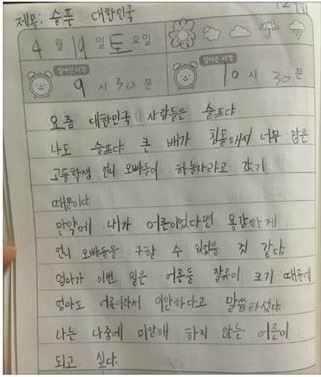 제목: 슬픈 대한민국
4월 19일 토요일
9시 30분 10시 30분
요즘 대한민국 사람들은 슬프다
나도 슬프다 큰 배가 침몰해서 너무 많은
고등학생 언니 오빠들이 하늘나라로 갔기
때문이다
만약에 내가 어른이었다면 용감하게
언니 오빠들을 구할 수 있었을 것 같다
엄마가 이번 일은 어른들 잘못이 크기 때문에
엄마도 어른이라서 미안하다고 말씀하셨다
나는 나중에 미안해 하지 않는 어른이
되고 싶다